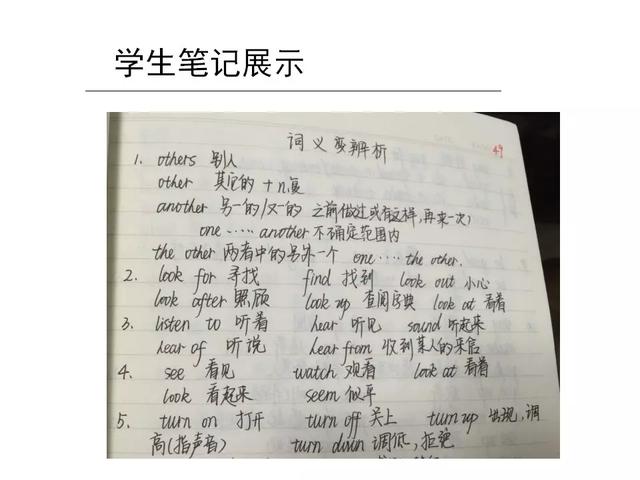 学生笔记展示
词义变辨析
49
1. others 别人
other 其它的 + n.复
another 另一的/又一的 之前做过或有这样,再来一次)
one ····· another 不确定范围内
the other 两者中的另外一个 one ···· the other.
2. look for 寻找 find 找到 look out 小心
look after 照顾 look up 查阅字典 look at 看着
3. listen to 听着 hear 听见 sound 听起来
hear of 听说 hear from 收到某人的来信
4. see 看见 watch 观看 look at 看着
look 看起来 seem 似乎
5. turn on 打开 turn off 关上 turn up 出现,调
高(指声音) turn down 调低,拒绝